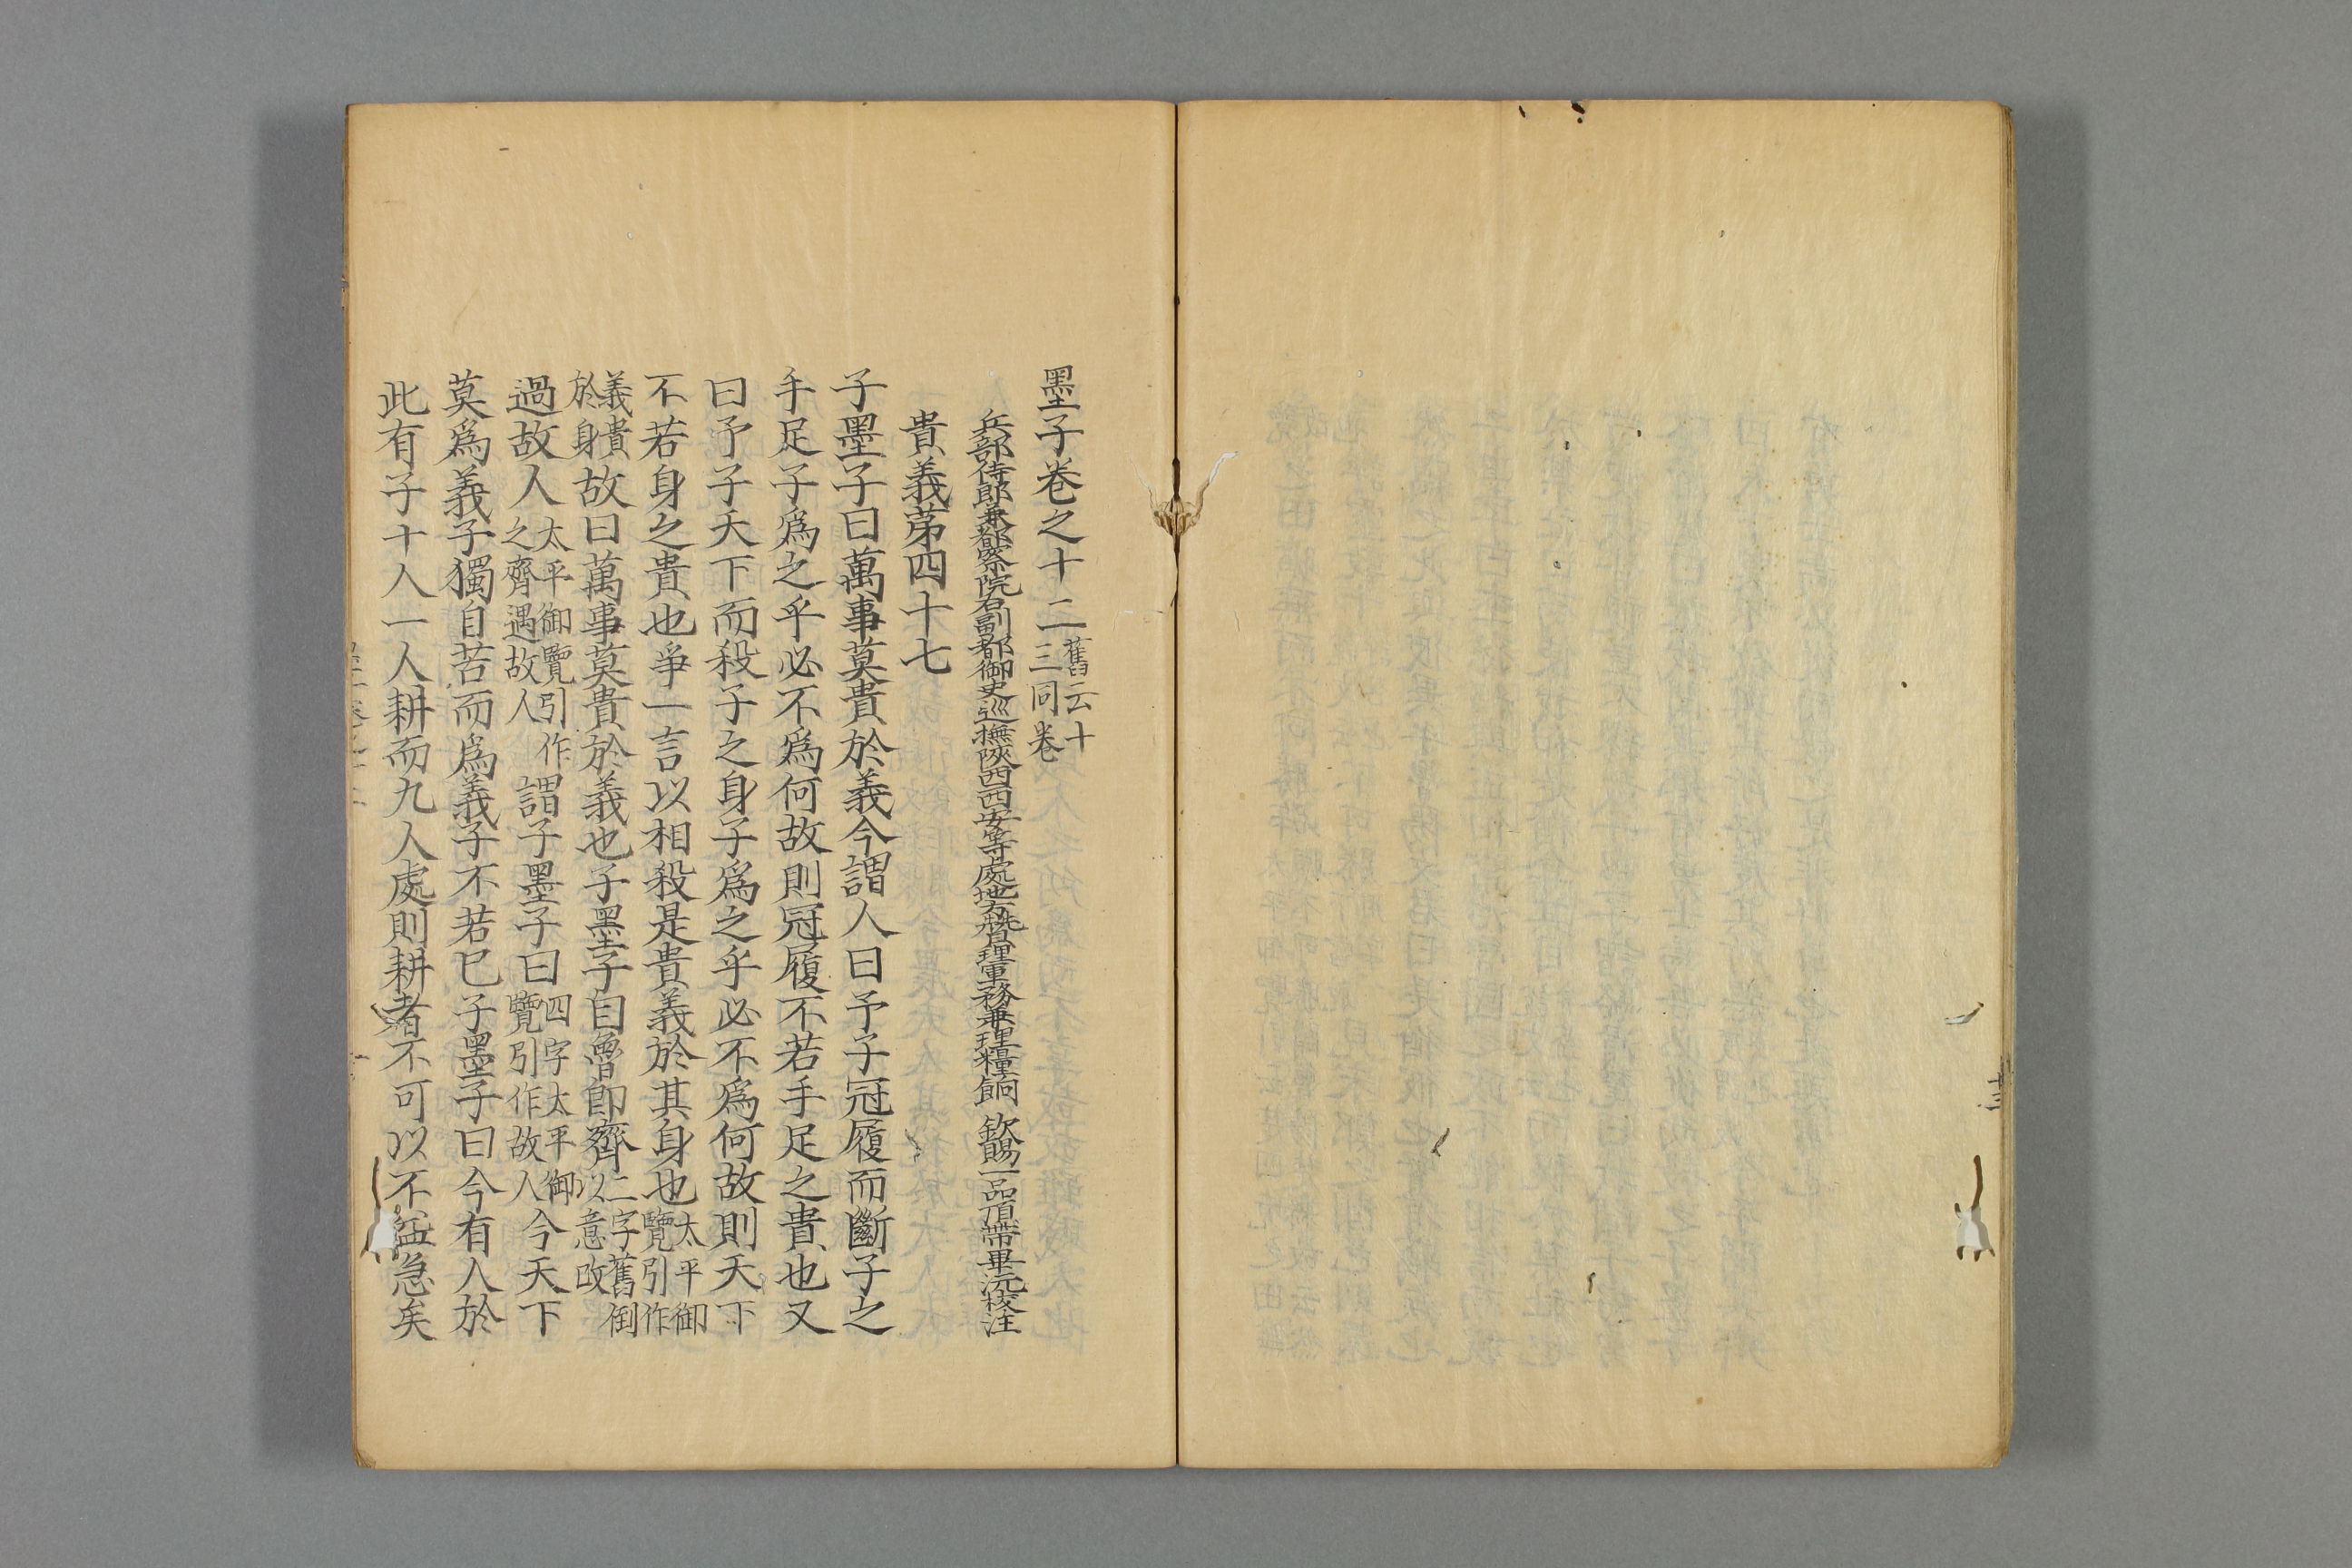 墨子卷之十二舊云十三同卷
兵部侍郎兼都察院右副都御史巡撫陝西西安等處地方贊理軍務兼理糧餉 欽賜一品頂帶畢沅校注
貴義苐四十七
子墨子曰萬事莫貴於義今謂人曰予子冠履而斷子之
手足子爲之乎必不爲何故則冠履不若手足之貴也又
曰予子天下而殺子之身子爲之乎必不爲何故則天下
不若身之貴也爭一言以相殺是貴義於其身也太平御覽引作
義貴於身故曰萬事莫貴於義也子墨子自魯即齊二字舊倒以意改
過故人太平御覽引作之齊遇故人謂子墨子曰四字太平御覽引作故人今天下
莫爲義子獨自苦而爲義子不若已子墨子曰今有人於
此有子十人一人耕而九人處則耕者不可以不益急矣